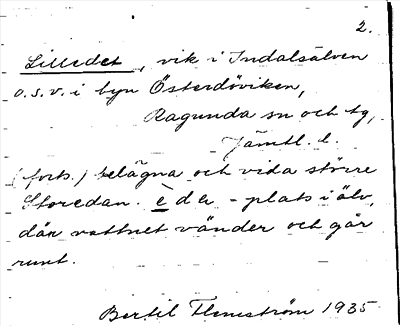 2.
Lilledet, vik i Indalsälven
o.s.v. i byn Österdöviken,
Ragunda sn och tg,
Jämtl. l.
(forts.) belägna och vida större
Storedan. èda - plats i älv,
där vattnet vänder och går
runt.
Bertil Flemström 1935